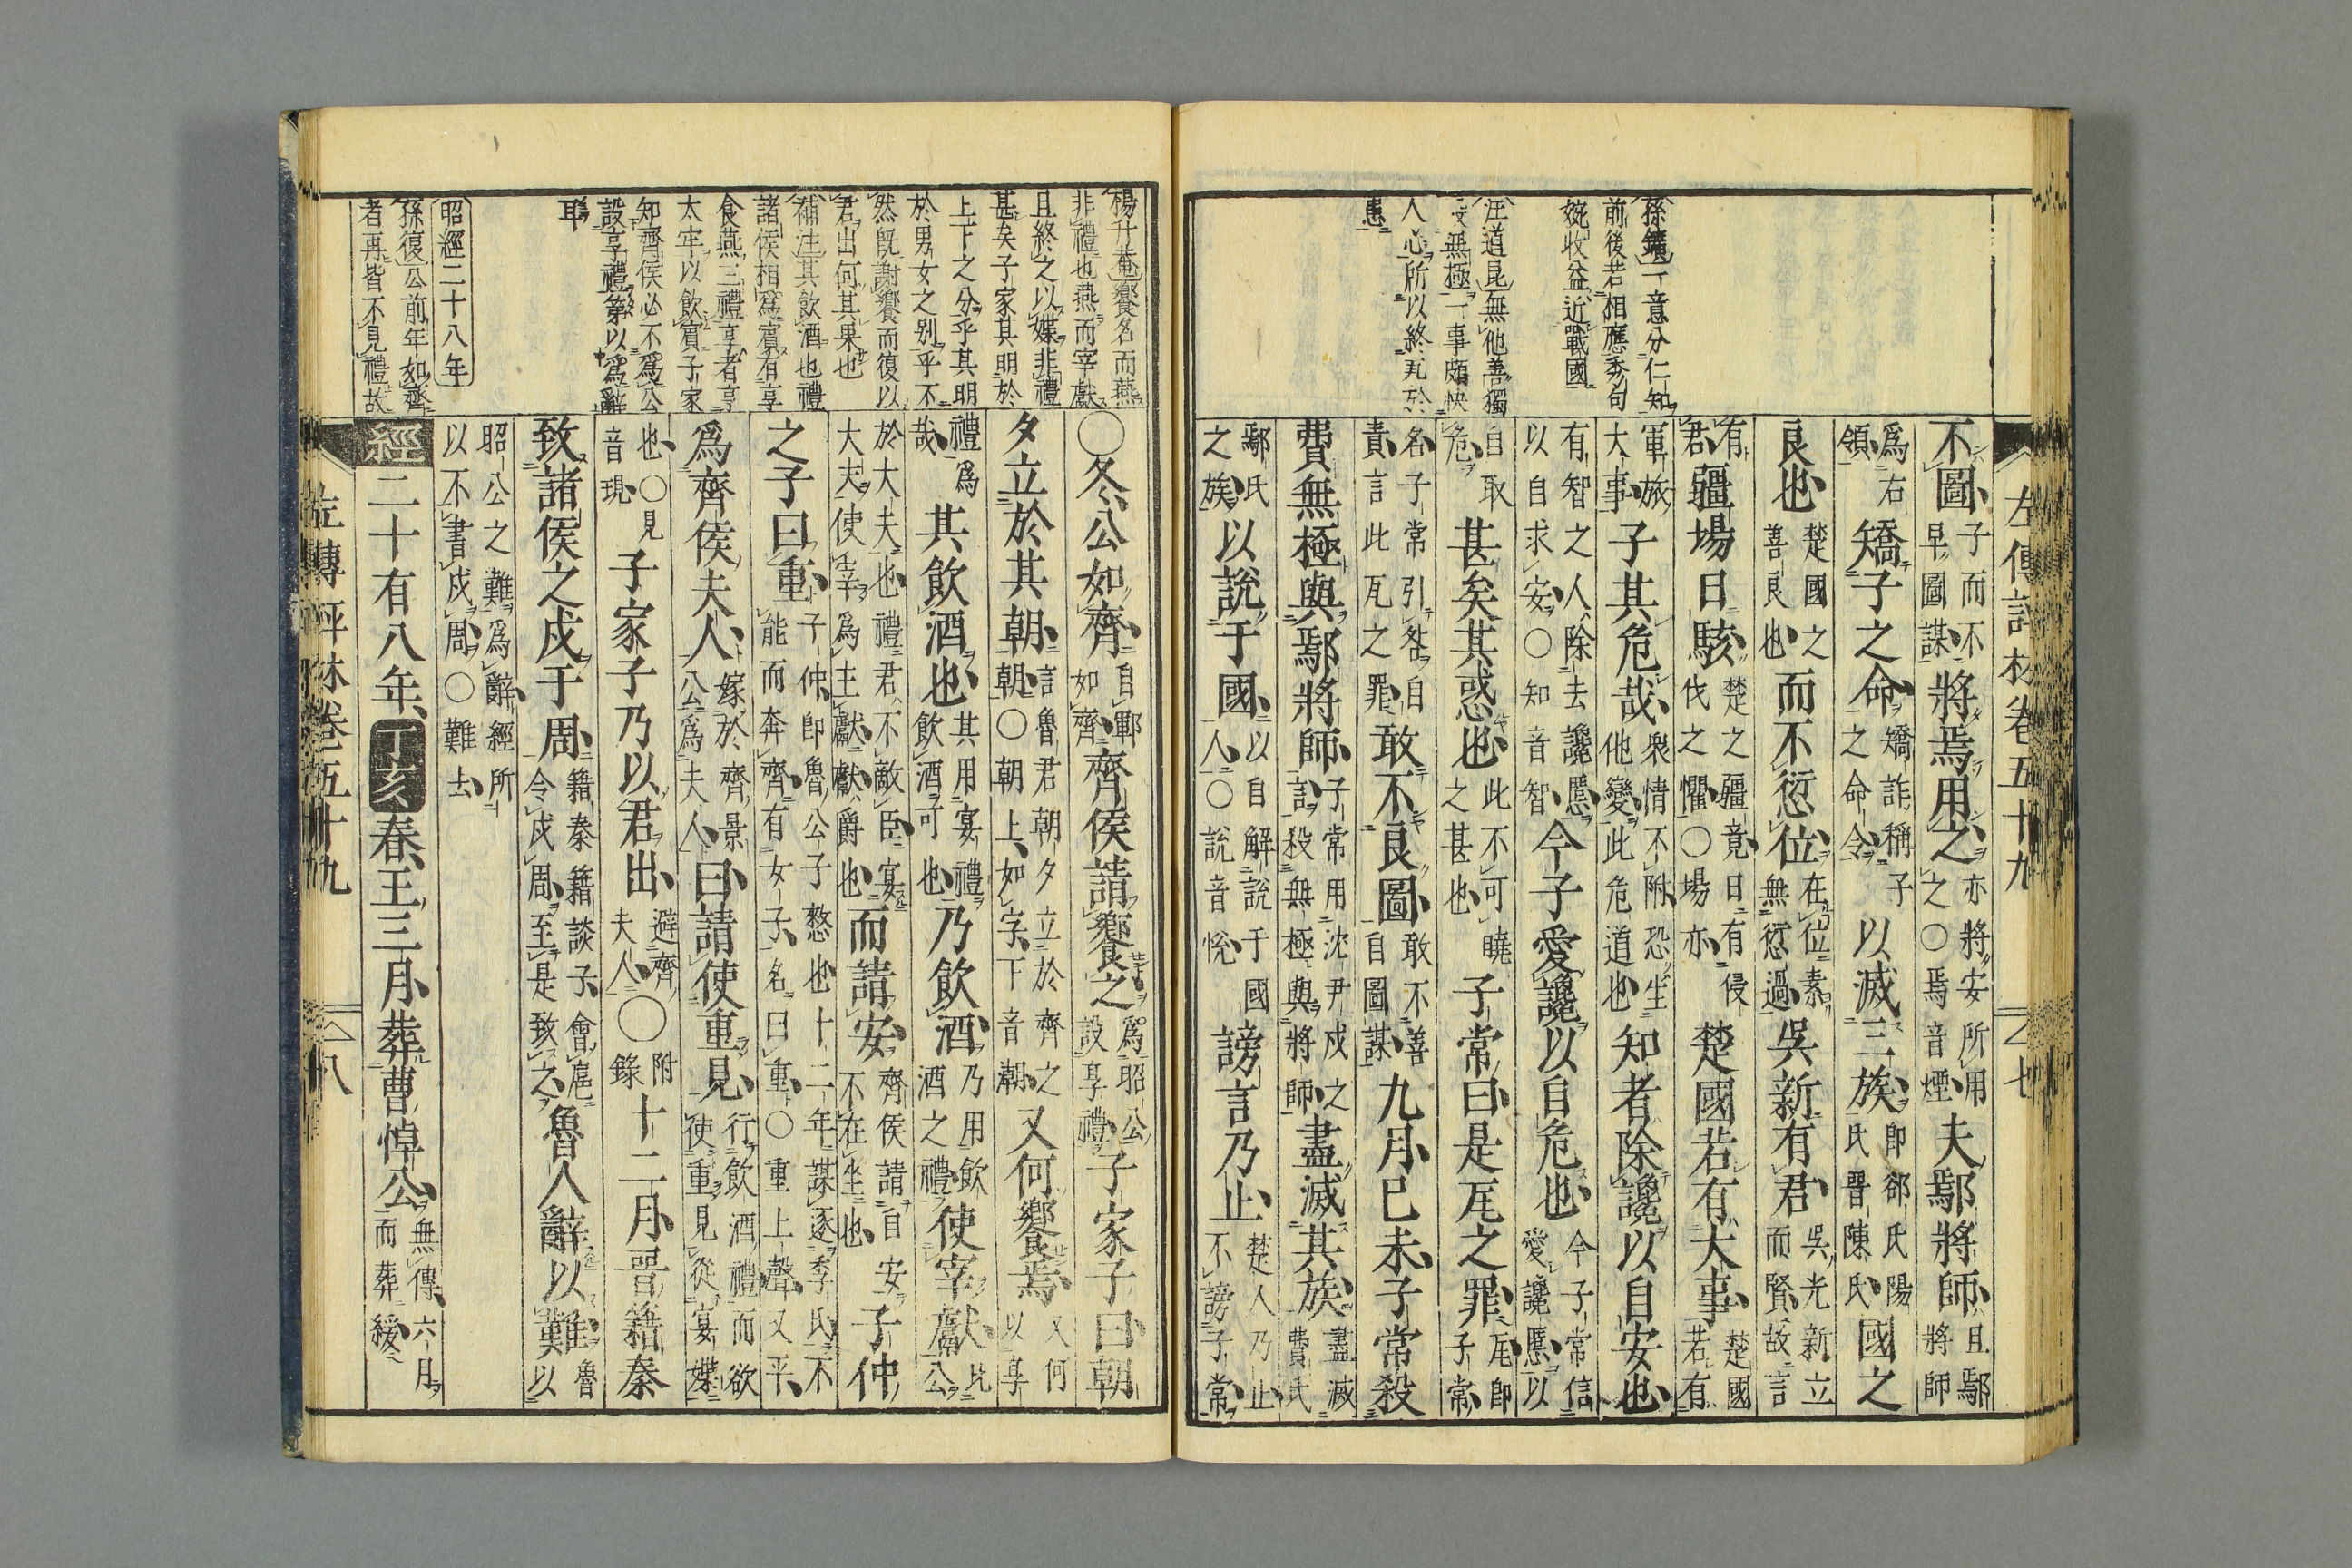 左傳評林卷五十九
七
孫鑛一意分仁知
前後若相應秀句
婉收益近戰國
汪道昆無他善獨
無極一事頗快
人心所以終死於
愚
不圖子而不早圖謀將焉用之亦將安所用之〇焉音煙夫鄢將師且鄢將師
為右領矯子之命矯詐稱子之命令以滅三族即郤氏陽氏晉陳氏國之
良也楚國之善良也而不愆位在位素無愆過吳新有君吳光新立而賢故言
有君疆場日駭楚之疆竟日有侵伐之懼〇場亦楚國若有大事楚國若有
軍旅大事子其危哉衆情不附恐生他變此危道也知者除讒以自安也
有智之人除去讒慝以自求安〇知音智今子愛讒以自危也今子常信愛讒慝以
自取危甚矣其惑也此不可曉之甚也子常曰是瓦之罪瓦即子常
名子常引咎自責言此瓦之罪敢不良圖敢不善自圖謀九月己未子常殺
費無極與鄢將師子常用沈尹戍之言殺無極與將師盡滅其族盡滅費氏
鄢氏之族以說于國以自解說于國人〇說音悅謗言乃止楚人乃止不謗子常
楊升菴饗名而燕
非禮也燕而宰獻
且終之以媟非禮
甚矣子家其明於
上下之分乎其明
於男女之别乎不
然既謝饗而復以
君出何其果也
補注其飲酒也禮
諸侯相為賓有享
食燕三禮享者享
太牢以飲賓子家
知齊侯必不為公
設享禮第以為辭
耳
昭經二十八年
孫復公前年如齊
者再皆不見禮故
〇冬公如齊自鄆如齊齊侯請饗之為昭公設享禮子家子曰朝
夕立於其朝言魯君朝夕立於齊之朝〇朝上如字下音潮又何饗焉又何以享
禮為哉其飲酒也其用宴禮飲酒可也乃飲酒乃用飲酒之禮使宰獻比公
於大夫也禮君不敵臣宴大夫使宰為主獻獻爵也而請安齊侯請自安不在坐也子仲
之子曰重子仲即魯公子憖也十二年謀逐季氏不能而奔齊有女子名曰重〇重上聲又平
為齊侯夫人嫁於齊景公為夫人曰請使重見行飲酒禮而欲使重見從宴媟
也〇見音現子家子乃以君出避齊夫人〇附錄十二月晉籍秦
致諸侯之戍于周籍秦籍談子會扈令戍周至是致之魯人辭以難魯以
昭公之難為辭經所以不書戍周〇難去
經二十有八年丁亥春王三月葬曹悼公無傳六月而葬緩
左傳評林卷五十九
八